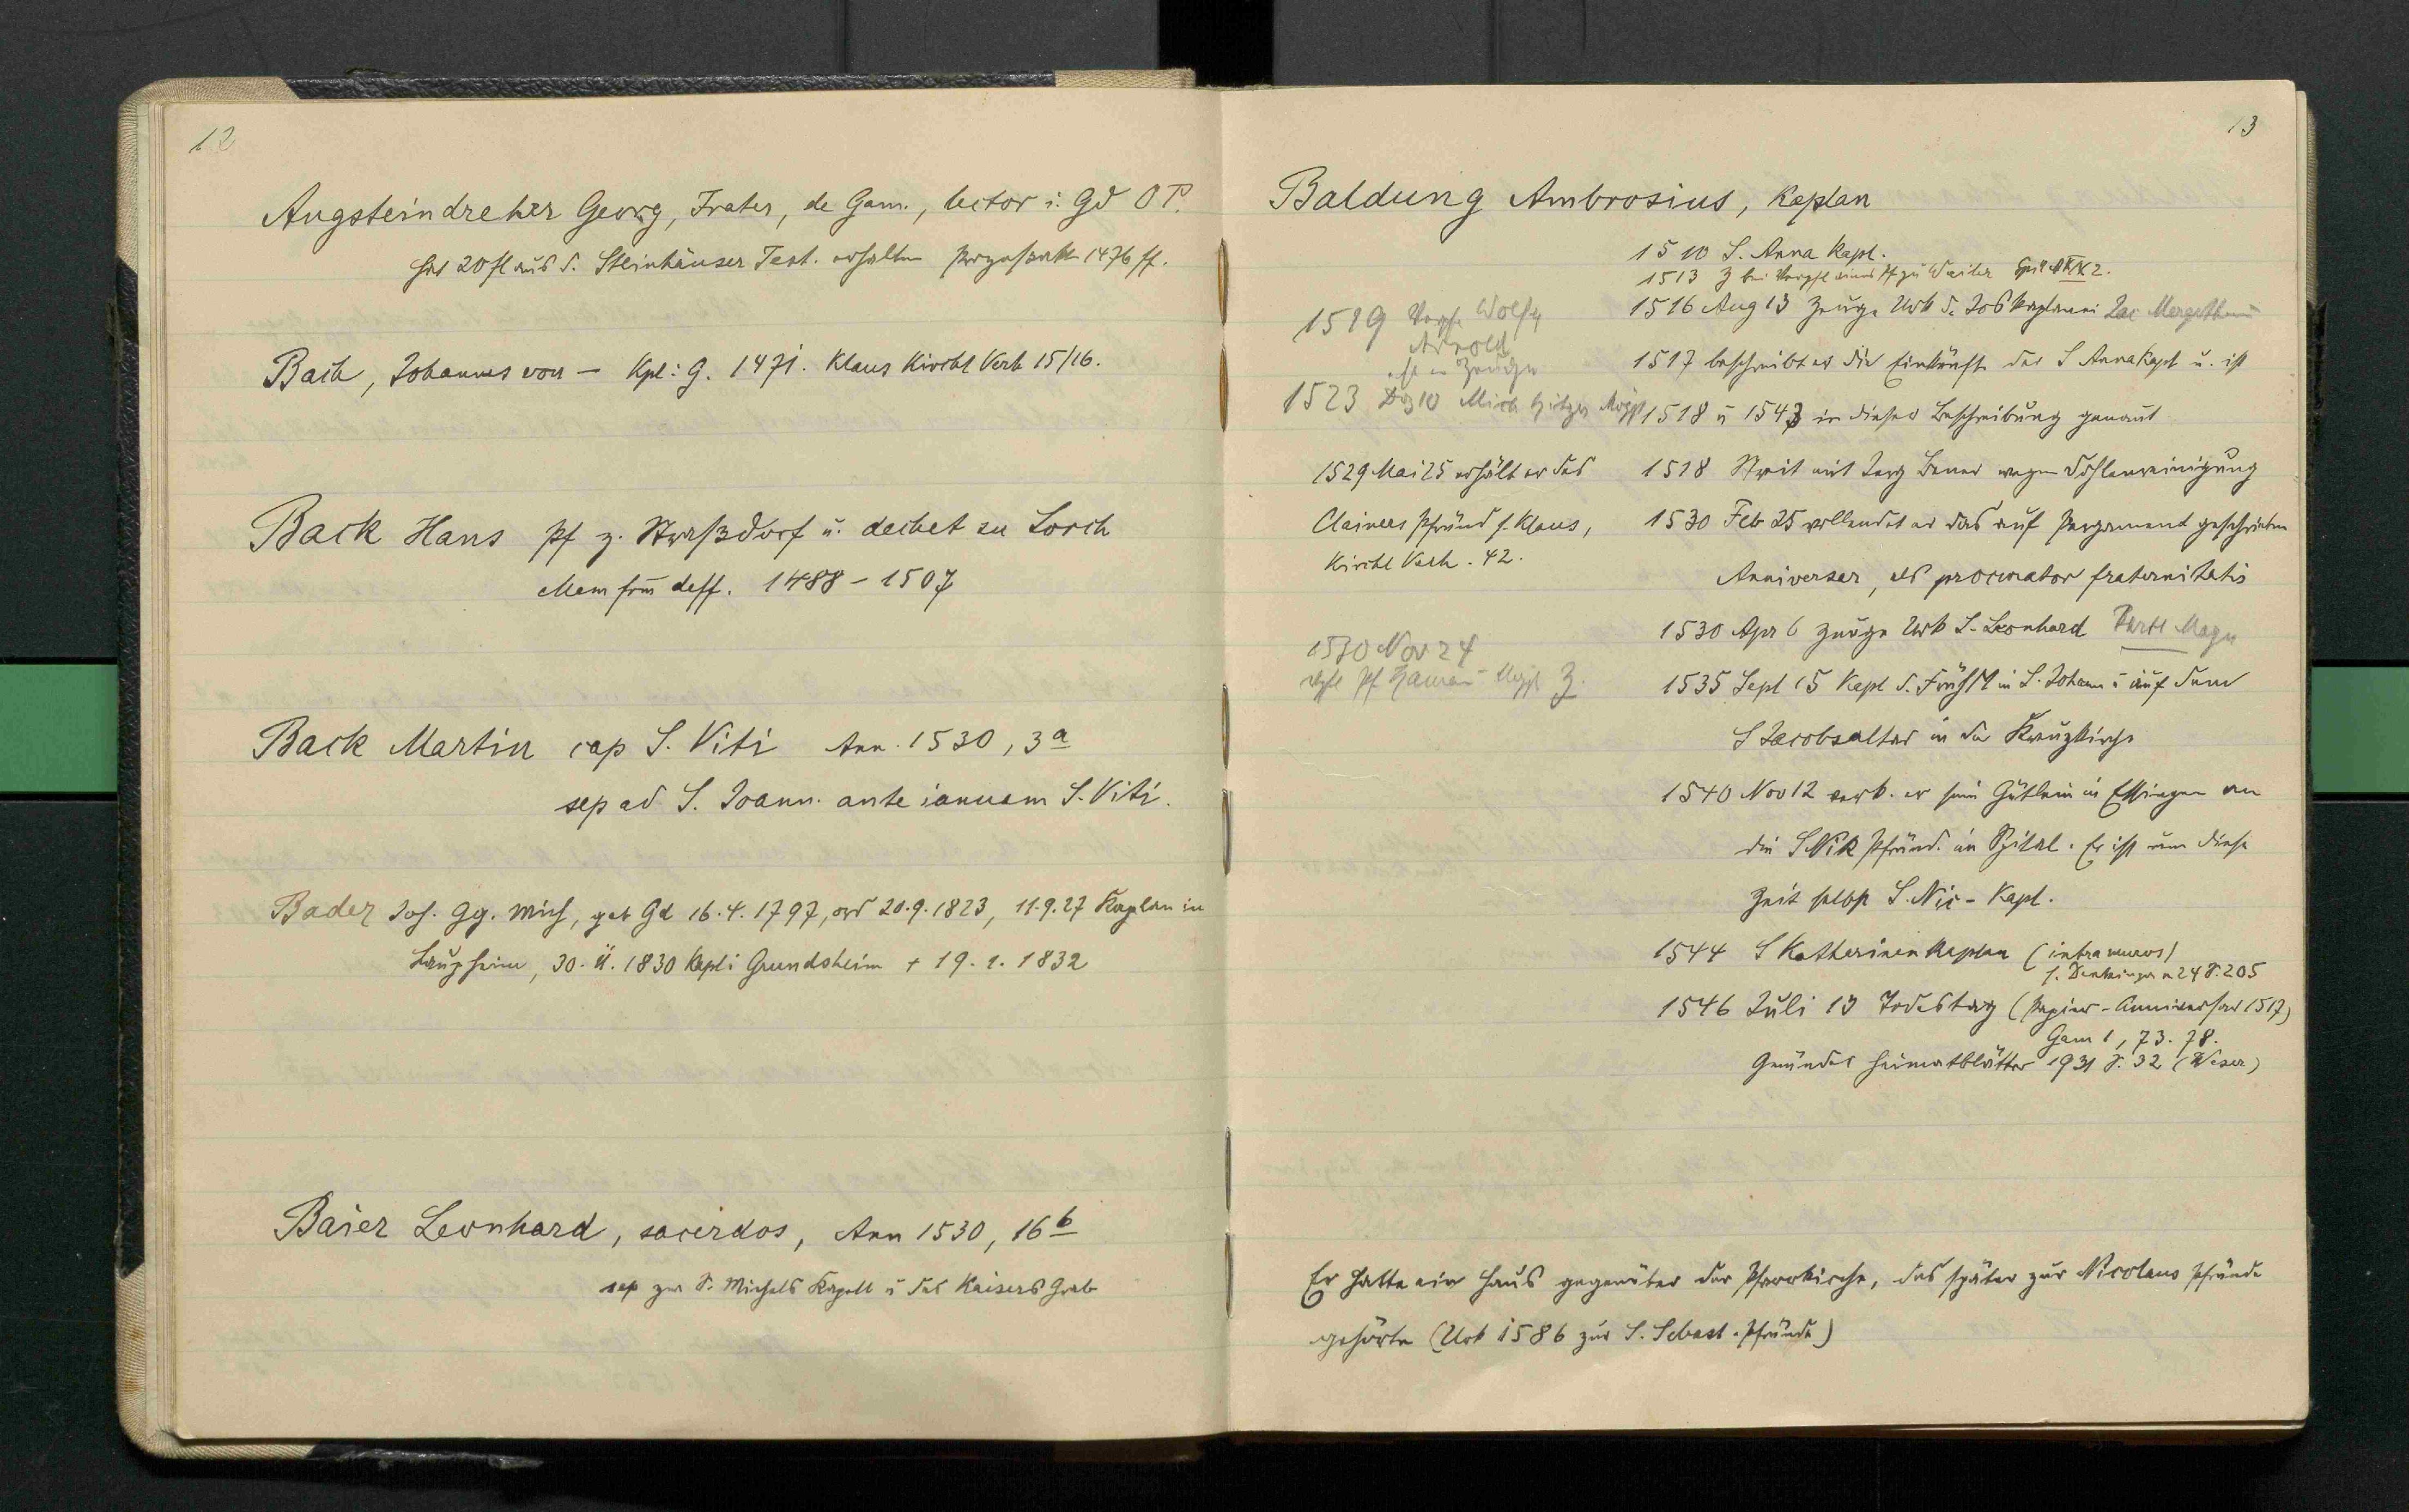 12
Augsteindreher Georg, Frater, de Gam., lector i. Gd O P.
hat 20 fl aus d. Steinhäuser Test. erhalten Prozessakte 1476 ff.
Bach, Johannes von — Kpl: G. 1471. Klaus Kirchl Verh 15/16.
Back Hans Pf z. Straßdorf u. dechet zu Lorch
Mem frm deff. 1488 - 1507
Back Martin cap S. Viti Ann. 1530, 3a
sep ad S. Joann. ante ianuam S. Viti.
Bader Jos. Gg. Mich, geb Gd 16.4.1797, ord 20.9.1823, 11.9.27 Kaplan in
Laupheim, 30. 11. 1830 Kapl i Grundsheim + 19. 1. 1832
Baier Leonhard, sacerdos, Ann 1530, 16b
sep zw S. Michels Kapell u das Kaisers Grab
13
Baldung Ambrosius, Kaplan
1510 S. Anna Kapl.
1513 Z bei Verpfl eines Pf zu Weiler
1516 Aug 13 Zeuge Urk d. Jos Kaplanei Lac Mergeth
1517 beschreibt er die Einkünfte der S Anna Kapl u. ist
1518 u 1543 in dieser Beschreibung genannt
1518 Streit mit Jerg Bener wegen Dohlenreinigung
1530 Feb 25 vollendet er das auf Pergament geschrieben
Anniversar, als procurator fraternitatis
1530 Apr 6 Zeuge Urk S. Leonhard
1535 Sept 15 Kapl d. Frühm in S. Johann u auf dem
S Jacobsaltar in der Kreuzkirche
1540 Nov 12 verk. er sein Gütlein in Essingen an
die S Nik Pfründ. im Spital. Er ist um diese
Zeit selbst S. Nic - Kapl.
1544 S Katharinenkaplan (intra muros)
s. Denkinger n 24 S. 205
1546 Juli 13 Todestag (Papier - Anniversar 1517)
Gam 1, 73. 78.
Gmünder Heimatblätter 1931 S. 32 (Weser)
1519 Wolfg
Arnold
ist er Zeuge
1523 Dez 10 Mich
1529 Mai 25 erhält er das
Clainers Pfründ s. Klaus,
Kirchl Verh. 42.
1530 Nov 24
Pf Z.
Er hatte ein Haus gegenüber der Pfarrkirche, das später zur Nicolaus Pfründe
gehörte (Urk 1586 zur S. Sebast. Pfründe)